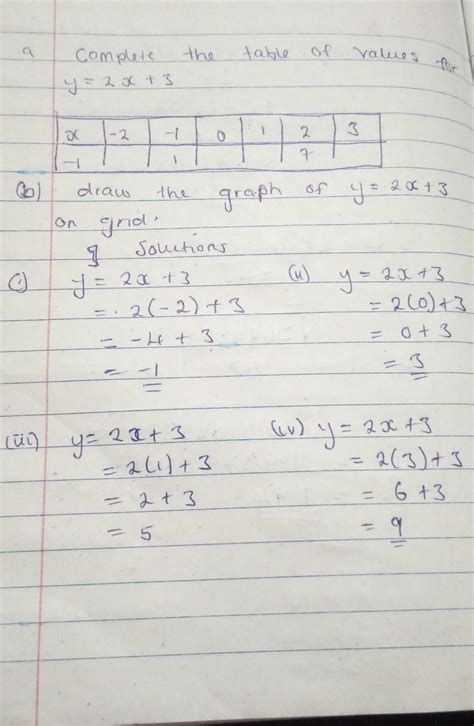 a Complete the table of values for
y = 2x + 3
x -2 -1 0 1 2 3
-1 1 7
(b) draw the graph of y = 2x+3
on grid.
Solutions
(i) y = 2x + 3 (ii) y = 2x+3
= 2(-2) + 3 = 2(0)+3
= -4 + 3 = 0+3
= -1 = 3
(iii) y = 2x + 3 (iv) y = 2x+3
= 2(1)+3 = 2(3)+3
= 2+3 = 6+3
= 5 = 9